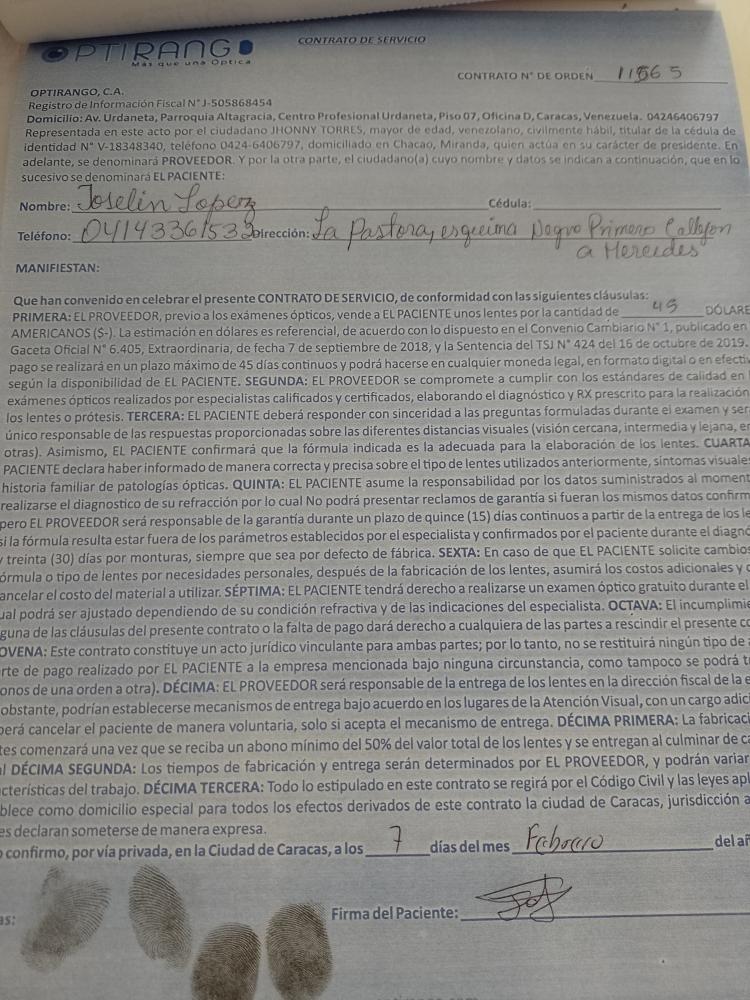 OPTIRANGO
Más que una Óptica
CONTRATO DE SERVICIO
CONTRATO N° DE ORDEN 11565
OPTIRANGO, C.A.
Registro de Información Fiscal N° J-505868454
Domicilio: Av. Urdaneta, Parroquia Altagracia, Centro Profesional Urdaneta, Piso 07, Oficina D, Caracas, Venezuela. 04246406797
Representada en este acto por el ciudadano JHONNY TORRES, mayor de edad, venezolano, civilmente hábil, titular de la cédula de
identidad N° V-18348340, teléfono 0424-6406797, domiciliado en Chacao, Miranda, quien actúa en su carácter de presidente. En
adelante, se denominará PROVEEDOR. Y por la otra parte, el ciudadano(a) cuyo nombre y datos se indican a continuación, que en lo
sucesivo se denominará EL PACIENTE:
Nombre: Joselin Lopez Cédula:
Teléfono: 04143361533 Dirección: La Pastora, esquina Negro Primero Callejon
a Mercedes
MANIFIESTAN:
Que han convenido en celebrar el presente CONTRATO DE SERVICIO, de conformidad con las siguientes cláusulas:
PRIMERA: EL PROVEEDOR, previo a los exámenes ópticos, vende a EL PACIENTE unos lentes por la cantidad de 45 DÓLARE
AMERICANOS ($-). La estimación en dólares es referencial, de acuerdo con lo dispuesto en el Convenio Cambiario N° 1, publicado en
Gaceta Oficial N° 6.405, Extraordinaria, de fecha 7 de septiembre de 2018, y la Sentencia del TSJ N° 424 del 16 de octubre de 2019.
pago se realizará en un plazo máximo de 45 días continuos y podrá hacerse en cualquier moneda legal, en formato digital o en efectiv
según la disponibilidad de EL PACIENTE. SEGUNDA: EL PROVEEDOR se compromete a cumplir con los estándares de calidad en l
exámenes ópticos realizados por especialistas calificados y certificados, elaborando el diagnóstico y RX prescrito para la realización
los lentes o prótesis. TERCERA: EL PACIENTE deberá responder con sinceridad a las preguntas formuladas durante el examen y ser
único responsable de las respuestas proporcionadas sobre las diferentes distancias visuales (visión cercana, intermedia y lejana, en
otras). Asimismo, EL PACIENTE confirmará que la fórmula indicada es la adecuada para la elaboración de los lentes. CUARTA
PACIENTE declara haber informado de manera correcta y precisa sobre el tipo de lentes utilizados anteriormente, síntomas visuale
historia familiar de patologías ópticas. QUINTA: EL PACIENTE asume la responsabilidad por los datos suministrados al moment
realizarse el diagnostico de su refracción por lo cual No podrá presentar reclamos de garantía si fueran los mismos datos confirm
pero EL PROVEEDOR será responsable de la garantía durante un plazo de quince (15) días continuos a partir de la entrega de los le
si la fórmula resulta estar fuera de los parámetros establecidos por el especialista y confirmados por el paciente durante el diagnó
y treinta (30) días por monturas, siempre que sea por defecto de fábrica. SEXTA: En caso de que EL PACIENTE solicite cambios
órmula o tipo de lentes por necesidades personales, después de la fabricación de los lentes, asumirá los costos adicionales y d
ancelar el costo del material a utilizar. SÉPTIMA: EL PACIENTE tendrá derecho a realizarse un examen óptico gratuito durante el
ual podrá ser ajustado dependiendo de su condición refractiva y de las indicaciones del especialista. OCTAVA: El incumplimie
guna de las cláusulas del presente contrato o la falta de pago dará derecho a cualquiera de las partes a rescindir el presente co
OVENA: Este contrato constituye un acto jurídico vinculante para ambas partes; por lo tanto, no se restituirá ningún tipo de a
rte de pago realizado por EL PACIENTE a la empresa mencionada bajo ninguna circunstancia, como tampoco se podrá t
onos de una orden a otra). DÉCIMA: EL PROVEEDOR será responsable de la entrega de los lentes en la dirección fiscal de la e
obstante, podrían establecerse mecanismos de entrega bajo acuerdo en los lugares de la Atención Visual, con un cargo adici
berá cancelar el paciente de manera voluntaria, solo si acepta el mecanismo de entrega. DÉCIMA PRIMERA: La fabricaci
tes comenzará una vez que se reciba un abono mínimo del 50% del valor total de los lentes y se entregan al culminar de ca
al DÉCIMA SEGUNDA: Los tiempos de fabricación y entrega serán determinados por EL PROVEEDOR, y podrán variar
cterísticas del trabajo. DÉCIMA TERCERA: Todo lo estipulado en este contrato se regirá por el Código Civil y las leyes apl
blece como domicilio especial para todos los efectos derivados de este contrato la ciudad de Caracas, jurisdicción a
es declaran someterse de manera expresa.
o confirmo, por vía privada, en la Ciudad de Caracas, a los 7 días del mes Febrero del añ
as:
Firma del Paciente: